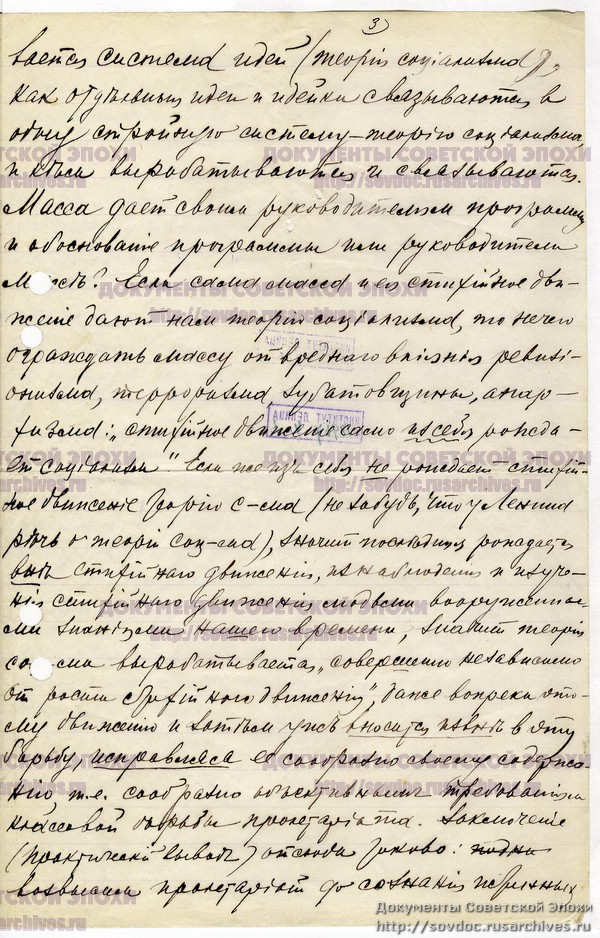 3)
вается система идей (теорія соціализма),
как отдѣльныя идеи и идейки связываются в
одну стройную систему – теорію соціализма,
и кѣмъ вырабатываются и связываются.
Масса дает своим руководителям программу
и обоснованіе программы или руководители
массѣ? Если сама масса и ея стихійное дви-
женіе дают нам теорію соціализма, то нечего
ограждать массу от вреднаго вліянія ревизі-
онизма, терроризма зубатовщины, анар-
хизма: „стихійное движеніе само из себя рожда-
ет соціализм". Если же изъ себя не рождает стихій-
ное движеніе теорію с-зма (не забудь, что у Ленина
рѣчь о теоріи соц-зма), значит послѣдняя рождается
внѣ стихійнаго движенія, из наблюденія и изуче-
нія стихійнаго движенія людьми вооруженны-
ми знаніями нашего времени, значит теорія
соц-зма вырабатывается „совершенно независимо
от роста стихійнаго движенія", даже вопреки это-
му движенію и затѣм уже вносится извнѣ в эту
борьбу, исправляя ее сообразно своему содержа-
нію, т.е. сообразно объективным требованіям
классовой борьбы пролетаріата. Заключеніе
(практическій выводъ) отсюда таково:
возвысим пролетаріат до сознанія истинных
ДОКУМЕНТЫ СОВЕТСКОЙ ЭПОХИ
http://sovdoc.rusarchives.ru
Документы Советской Эпохи
http://sovdoc.rusarchives.ru